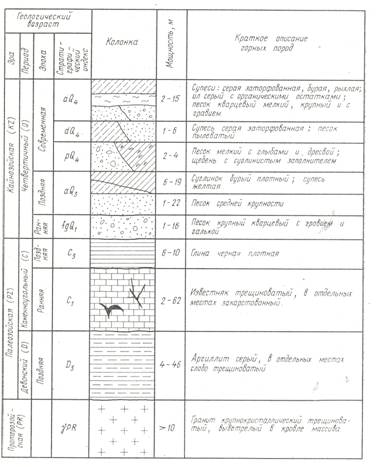 Геологический возраст
Эра
Период
Эпоха
Страти-графи-ческий индекс
Колонка
Мощность, м
Краткое описание горных пород
Кайнозойская (KZ)
Четвертичный (Q)
Современная
aQ4
2-15
Супеси: серая заторфованная, бурая, рыхлая;
ил серый с органическими остатками;
песок кварцевый мелкий, крупный и с
гравием
dQ4
1-6
Супесь серая заторфованная; песок
пылеватый
pQ4
2-4
Песок мелкий с глыбами и дресвой;
щебень с суглинистым заполнителем
Поздняя
aQ3
6-19
Суглинок бурый плотный; супесь
желтая
1-22
Песок средней крупности
Ран-няя
fgQ1
1-16
Песок крупный кварцевый с гравием и
галькой
Палеозойская (PZ)
Каменноугольный (C)
Позд-няя
C3
6-10
Глина черная плотная
Ранняя
C1
2-62
Известняк трещиноватый, в отдельных
местах закарстованный
Девонский (D)
Поздняя
D3
4-46
Аргиллит серый, в отдельных местах
слабо трещиноватый
Протерозой-ская (PR)
γPR
>10
Гранит крупнокристаллический трещинова-
тый, выветрелый в кровле массива